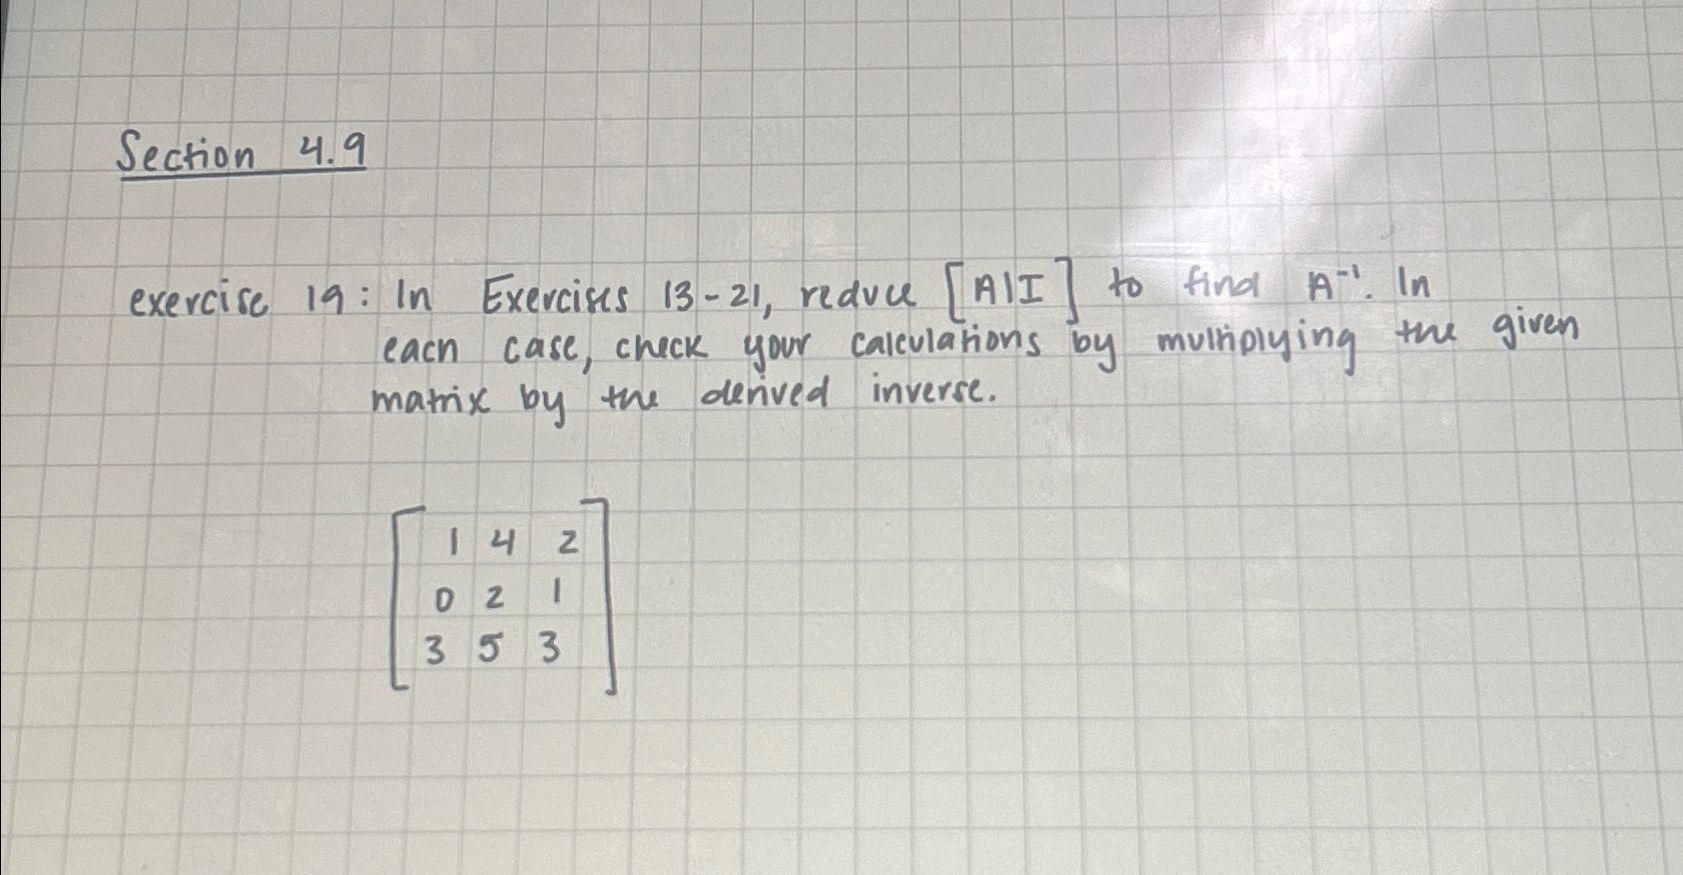 Section 4.9
exercise 19: In Exercises 13-21, reduce [A|I] to find A⁻¹. In
each case, check your calculations by multiplying the given
matrix by the derived inverse.
1 4 2
0 2 1
3 5 3